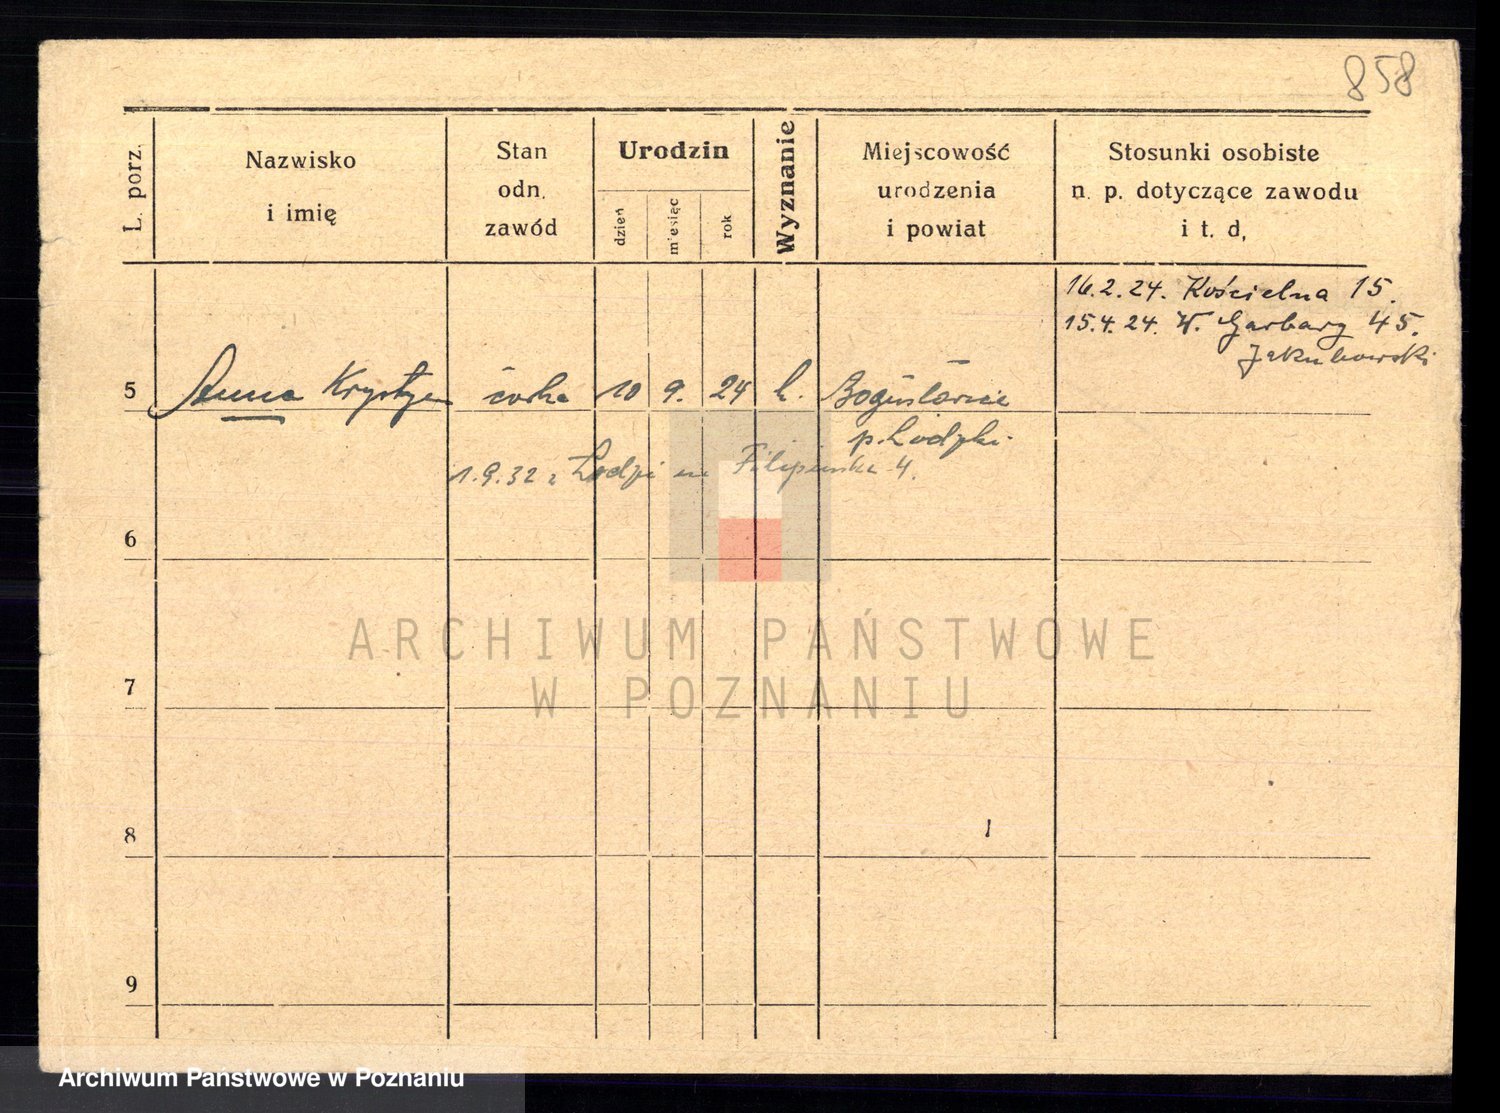 858
L. porz.
Nazwisko
i imię
Stan
odn.
zawód
Urodzin
dzień
miesiąc
rok
Wyznanie
Miejscowość
urodzenia
i powiat
Stosunki osobiste
n. p. dotyczące zawodu
i t. d,
16.2.24. Kościelna 15.
15.4.24. W. Garbary 45.
Jakubowski
5 Anna Krystyna córka 10 9. 24 k.
p. Łódzki
1.9.32 z Łodzi 4.
6
7
8
9
ARCHIWUM PAŃSTWOWE
W POZNANIU
Archiwum Państwowe w Poznaniu